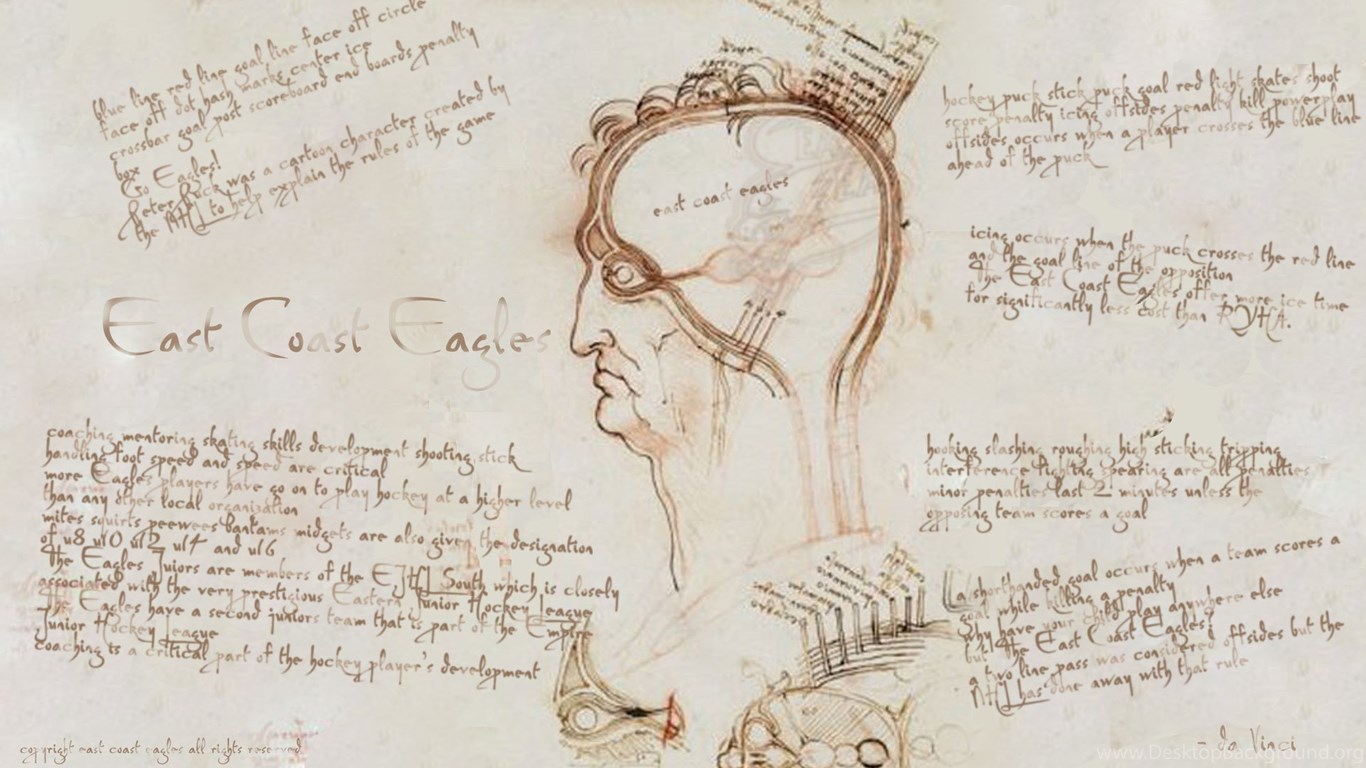 blue line red line goal line face off circle
face off dot hash marks center ice
crossbar goal post scoreboard end boards penalty
box
Go Eagles!
Peter Puck was a cartoon character created by
the NHL to help explain the rules of the game
East Coast Eagles
coaching mentoring skating skills development shooting stick
handling foot speed and speed are critical
more Eagles players have go on to play hockey at a higher level
than any other local organization
mites squirts peewees bantams midgets are also given the designation
of u8 u10 u12 u14 and u16
The Eagles Juiors are members of the EJHL South which is closely
associated with the very prestigious Eastern Junior Hockey League
The Eagles have a second juniors team that is part of the Empire
Junior Hockey League
coaching is a critical part of the hockey player's development
copyright east coast eagles all rights reserved
east coast eagles
hockey puck stick puck goal red light skates shoot
score penalty icing offsides penalty kill powerplay
offsides occurs when a player crosses the blue line
ahead of the puck
icing occurs when the puck crosses the red line
and the goal line of the opposition
The East Coast Eagles offer more ice time
for significantly less cost than RYHA.
hooking slashing roughing high sticking tripping
interference fighting spearing are all penalties
minor penalties last 2 minutes unless the
opposing team scores a goal
a shorthanded goal occurs when a team scores a
goal while killing a penalty
why have your child play anywhere else
but the East Coast Eagles?
a two line pass was considered offsides but the
NHL has done away with that rule
- da Vinci
www.DesktopBackground.org